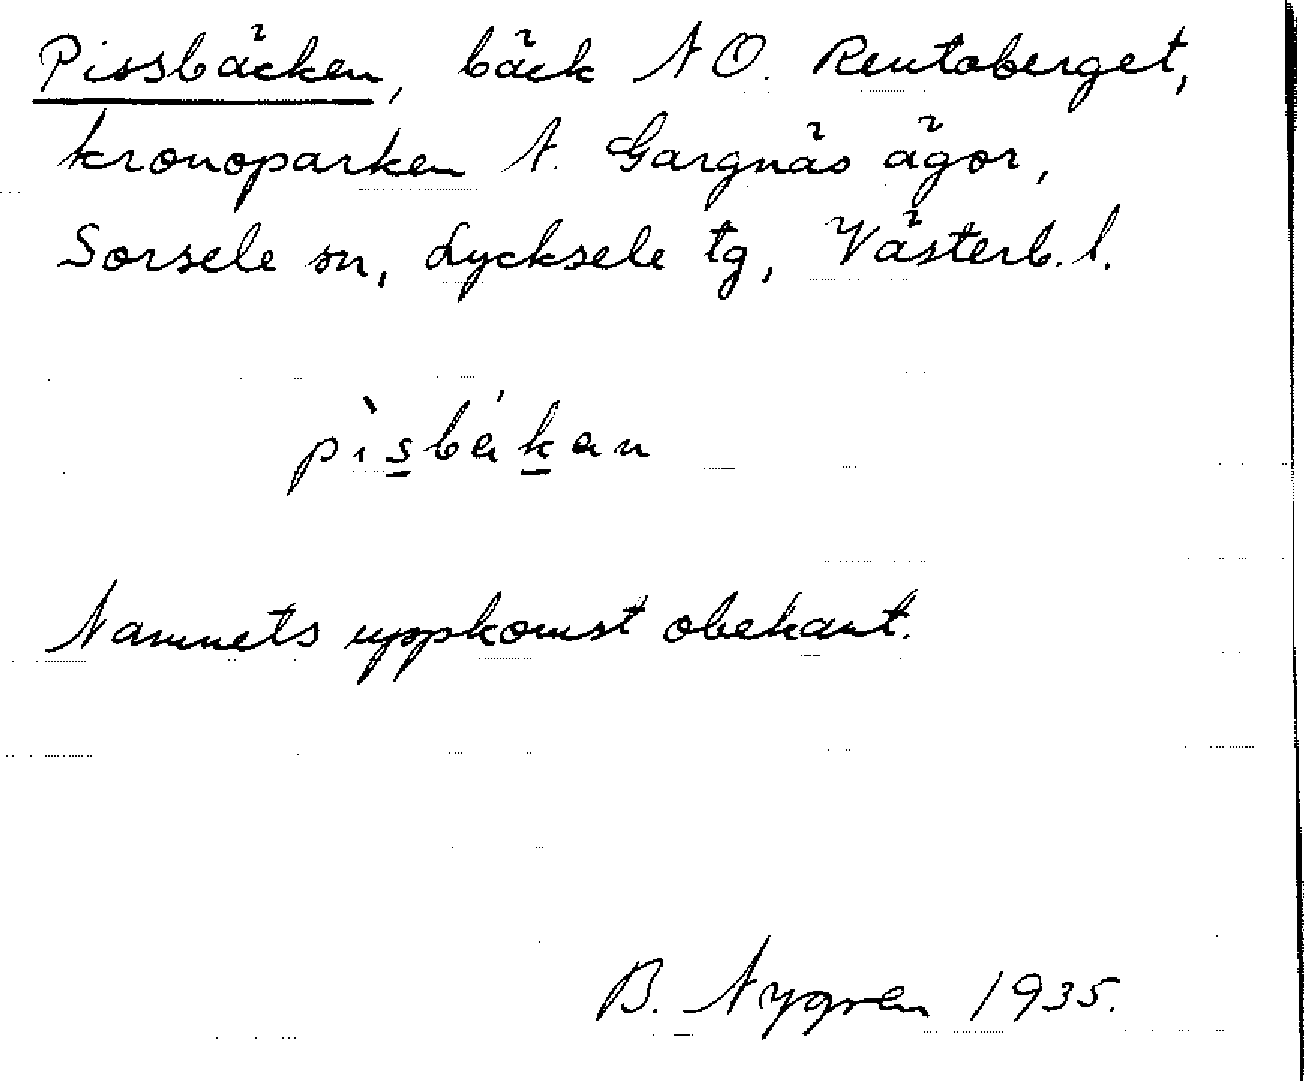 Pissbäcken, bäck N O. Rentaberget,
kronoparken N. Gargnäs ägor,
Sorsele sn, Lycksele tg, Västerb. l.
pìsbä́kan
Namnets uppkomst obekant.
B. Nygren 1935.